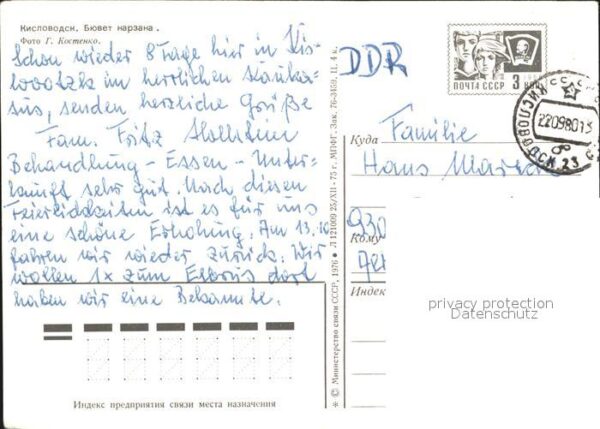 Кисловодск. Бювет нарзана.
Фото Г. Костенко.
Schon wieder 8 Tage hier in Kis-
lowodzk im herrlichen Kauka-
sus, senden herzliche Grüße
Fam. Fritz
Behandlung - Essen - Unter-
kunft sehr gut. Nach diesen
ist es für uns
eine schöne Erholung. Am 13.10
fahren wir wieder zurück. Wir
wollen 1x zum Elbrus dort
haben wir eine Bekannte.
Индекс предприятия связи места назначения
* © Министерство связи СССР, 1976 ● Л 121009 25/XII-75 г. МПФГ. Зак. 76-3459. Ц. 4 к.
DDR
ПОЧТА СССР 3 КОП
КИСЛОВОДСК 23
220980
Куда Familie
Hans
930
Кому
Индекс
privacy protection
Datenschutz